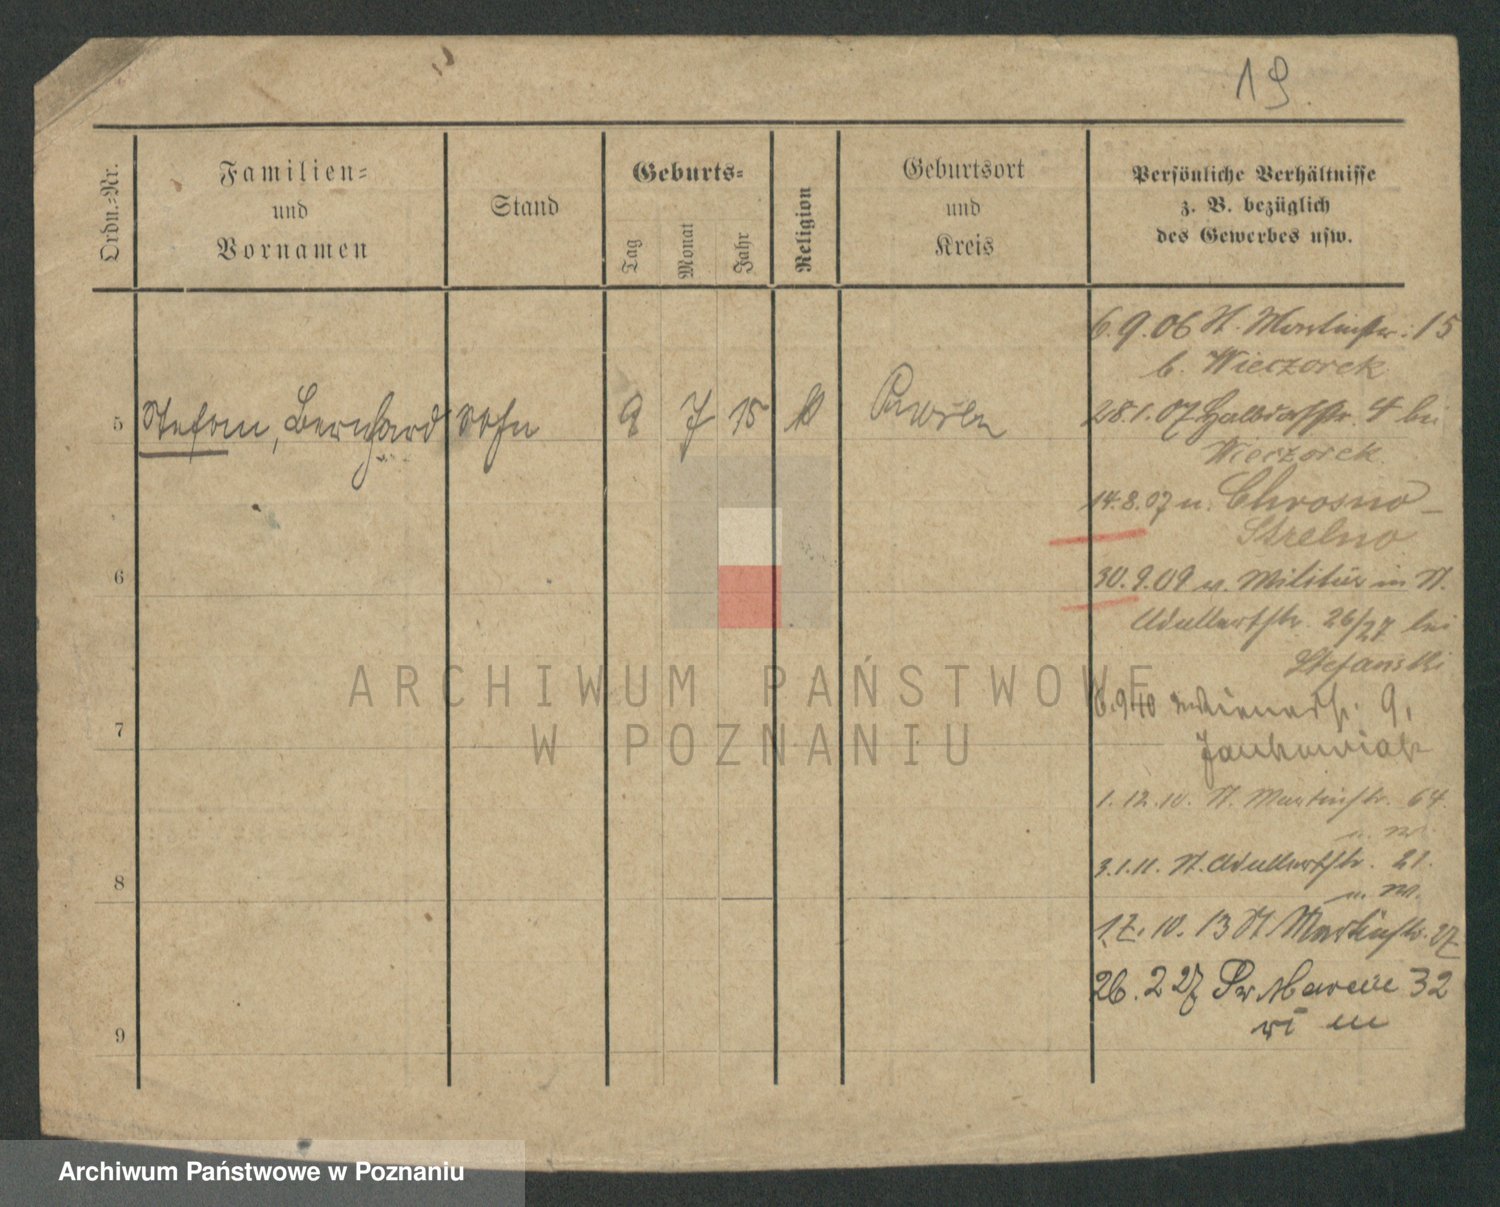 19
Ordn.-Nr.
Familien-
und
Vornamen
Stand
Geburts-
Tag
Monat
Jahr
Religion
Geburtsort
und
Kreis
Persönliche Verhältnisse
z. B. bezüglich
des Gewerbes usw.
5
Stefan, Bernhard
Sohn
9
7
15
k
Posen
6.9.06 St. Martinstr. 15
b. Wieczorek
28.1.07 Halbdorfstr. 4 bei
Wieczorek
14.8.07 n. Chrosno-
Strelno
30.9.09 v. Militär in St.
Adalbertstr. 26/27 bei
Stefanski
9,
Jankowiak
1.12.10. St. Martinstr. 64
u. W.
3.1.11. St. Adalbertstr. 21.
u. W.
17.10.13 St Martinstr. 27
26.2 27 Sw Marcin 32
m
6
7
8
9
ARCHIWUM PAŃSTWOWE
W POZNANIU
Archiwum Państwowe w Poznaniu